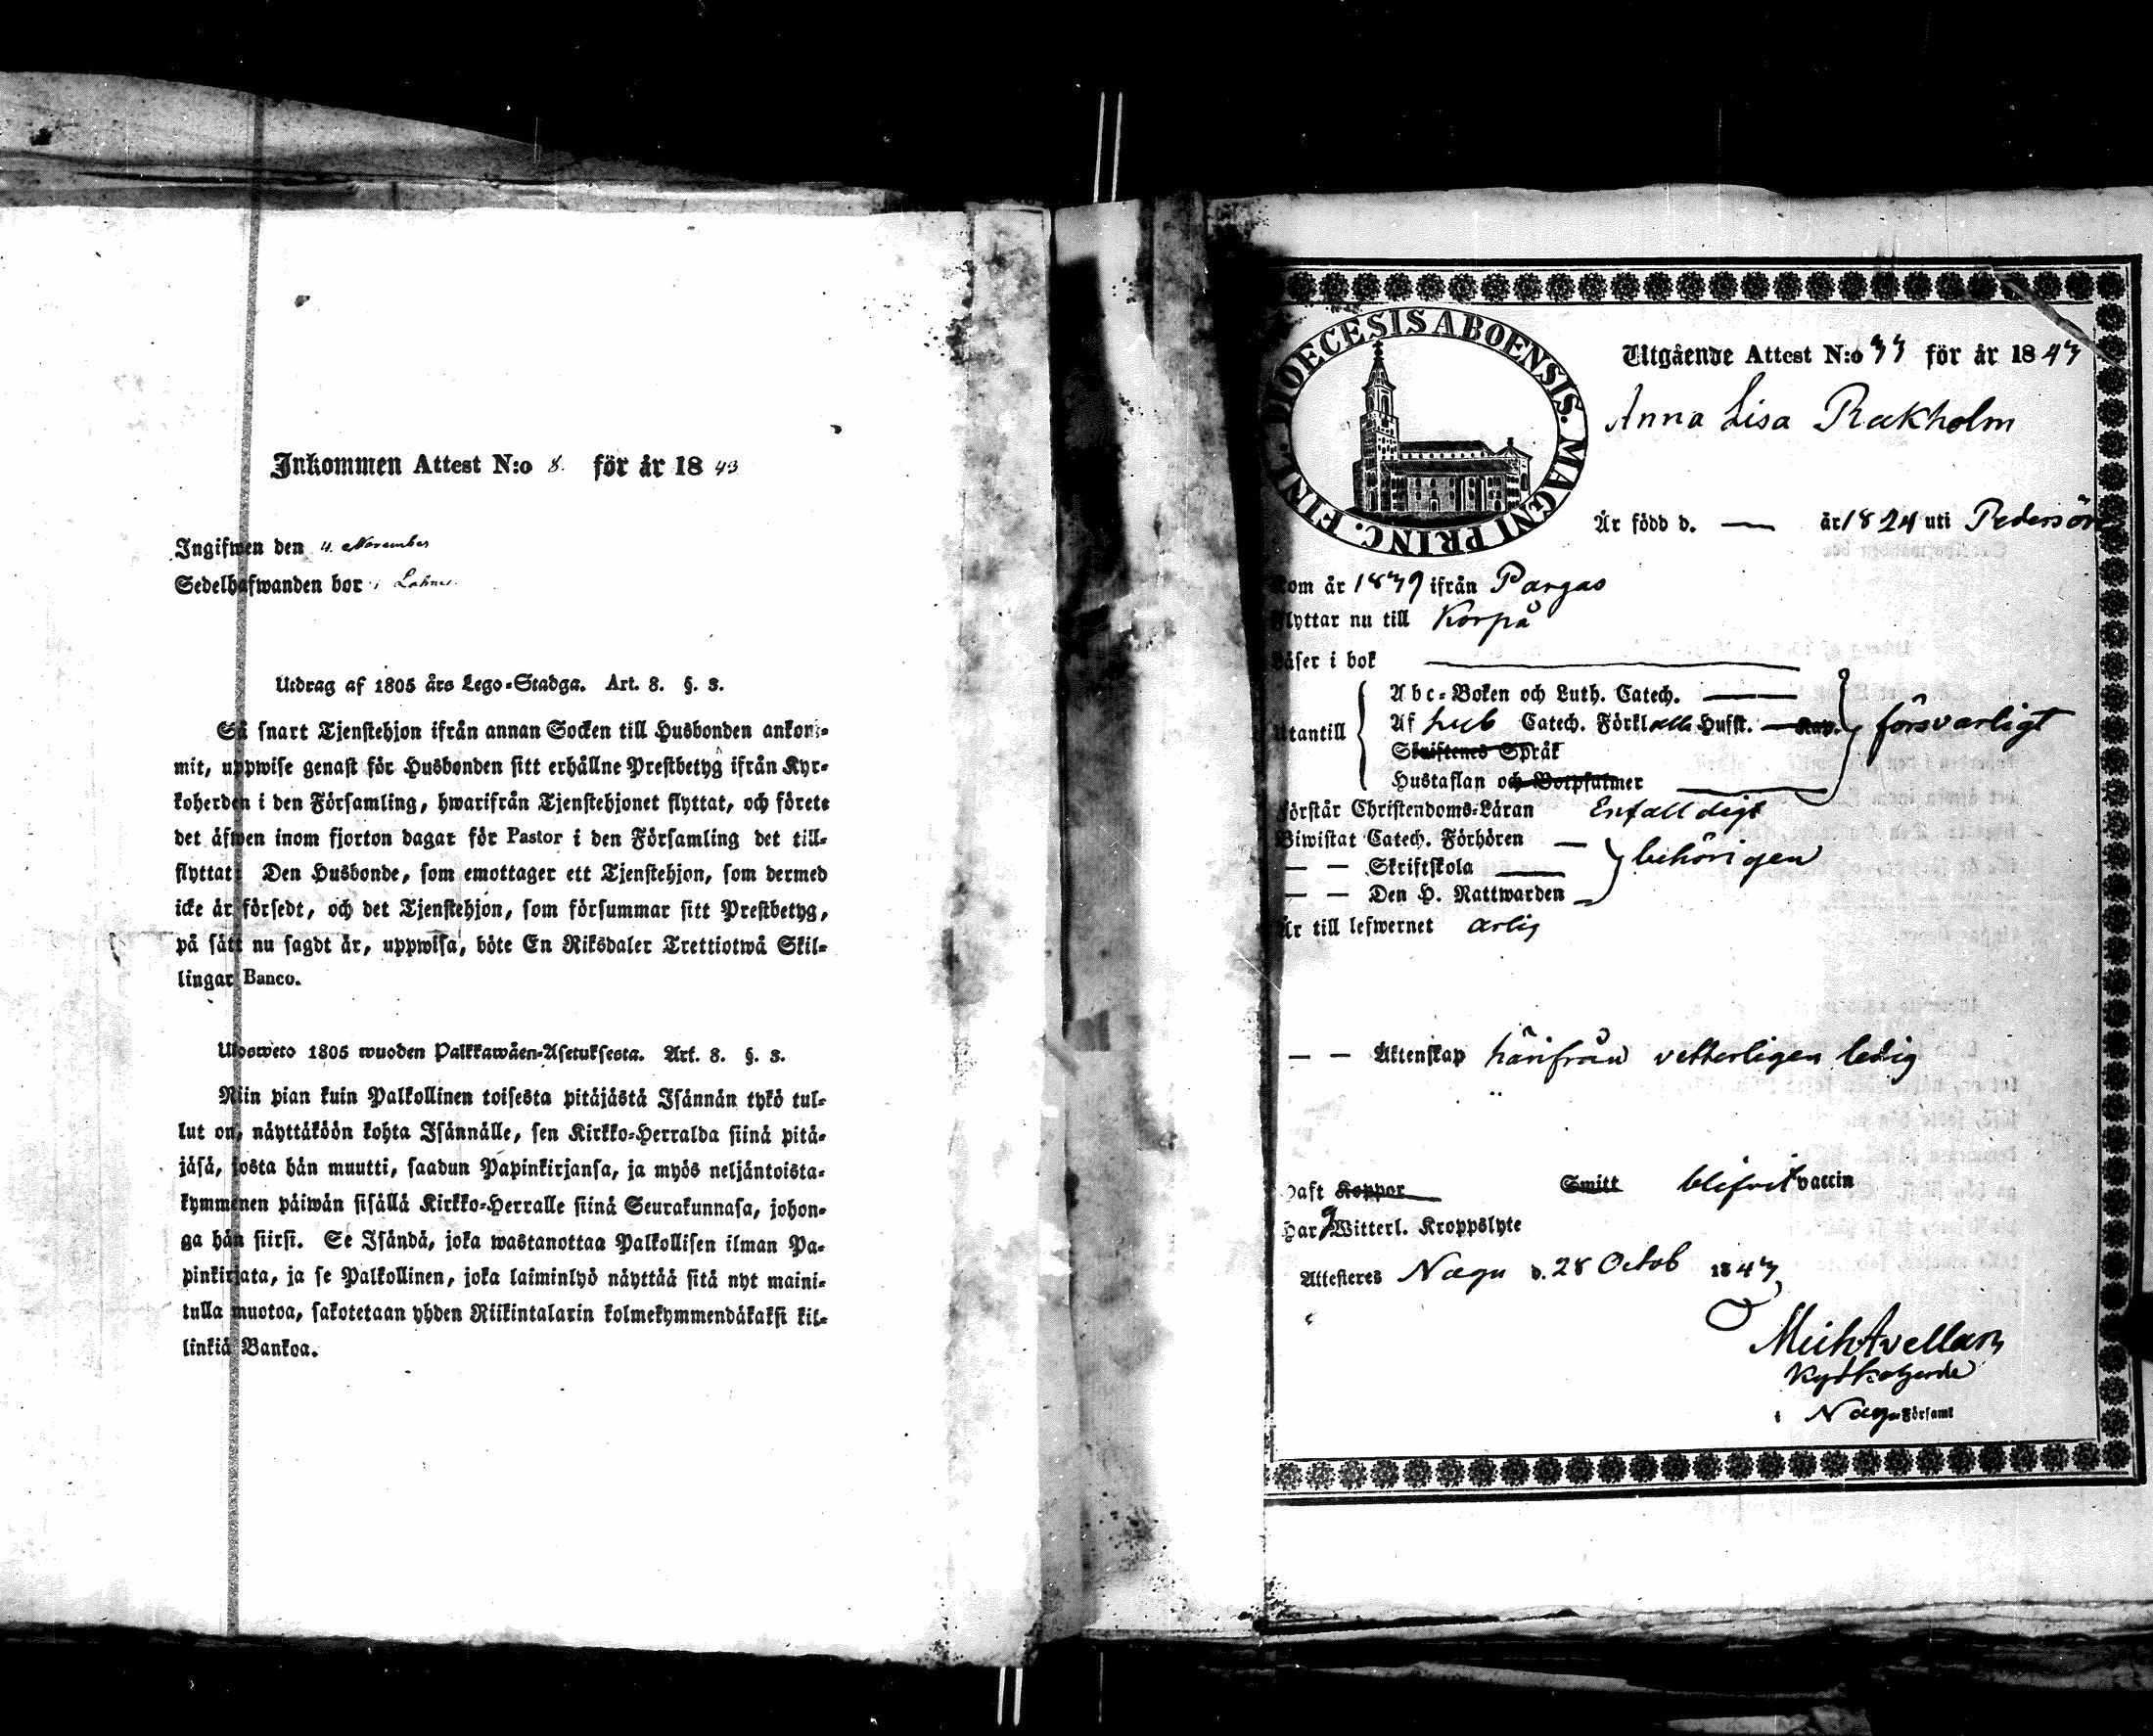 Inkommen Attest N:o 8. för år 1843
Ingifwen den 4 November
Sedelhafwanden bor i
Utdrag af 1805 års Lego-Stadga. Art. 8. §. 3.
Så snart Tjenstehjon ifrån annan Socken till Husbonden ankom-
mit, uppwise genast för Husbonden sitt erhållne Prestbetyg ifrån Kyr-
koherden i den Församling, hwarifrån Tjenstehjonet flyttat, och förete
det äfwen inom fjorton dagar för Pastor i den Församling det till-
flyttat. Den Husbonde, som emottager ett Tjenstehjon, som dermed
icke är försedt, och det Tjenstehjon, som försummar sitt Prestbetyg,
på sätt nu sagdt är, uppwisa, böte En Riksdaler Trettiotwå Skil-
lingar Banco.
Ulosweto 1805 wuoden Palkkawäen-Asetuksesta. Art. 8. §. 3.
Niin pian kuin Palkollinen toisesta pitäjästä Isännän tykö tul-
lut on, näyttäköön kohta Isännälle, sen Kirkko-Herralda siinä pitä-
jäsä, josta hän muutti, saadun Papinkirjansa, ja myös neljäntoista-
kymmenen päiwän sisällä Kirkko-Herralle siinä Seurakunnasa, johon-
ga hän siirsi. Se Isändä, joka wastanottaa Palkollisen ilman Pa-
pinkirjata, ja se Palkollinen, joka laiminlyö näyttää sitä nyt maini-
tulla muotoa, sakotetaan yhden Riikintalarin kolmekymmendäkaksi kil-
linkiä Bankoa.
DIOECESIS ABOENSIS. MAGNI PRINC. FINL.
Utgående Attest N:o 33 för år 1843
Anna Lisa Rækholm
Är född d. — år 1824 uti Pedersön
Kom år 1839 ifrån Pargas
Flyttar nu till Korpå
Läser i bok
Utantill
Abc-Boken och Luth. Catech.
Af Catech. Förkl. alla Hufst. Kap.
Skriftenes Språk
Hustaflan och Botpsalmer
försvarligt
Förstår Christendoms-Läran Enfalldigt
Biwistat Catech. Förhören —
— — Skriftskola
— — Den H. Nattwarden
behörigen
Är till lefwernet ärlig
— — Äktenskap härifrån vetterligen ledig
Haft Koppor Smitt blifvit vaccin
Har Witterl. Kroppslyte
Attesteras Nagu d. 28 Octob 1843
Mich Avellan
Kyrkoherde
i Nagu Församl